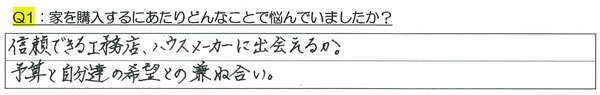 Q1：家を購入するにあたりどんなことで悩んでいましたか？
信頼できる工務店、ハウスメーカーに出会えるか。
予算と自分達の希望との兼ね合い。